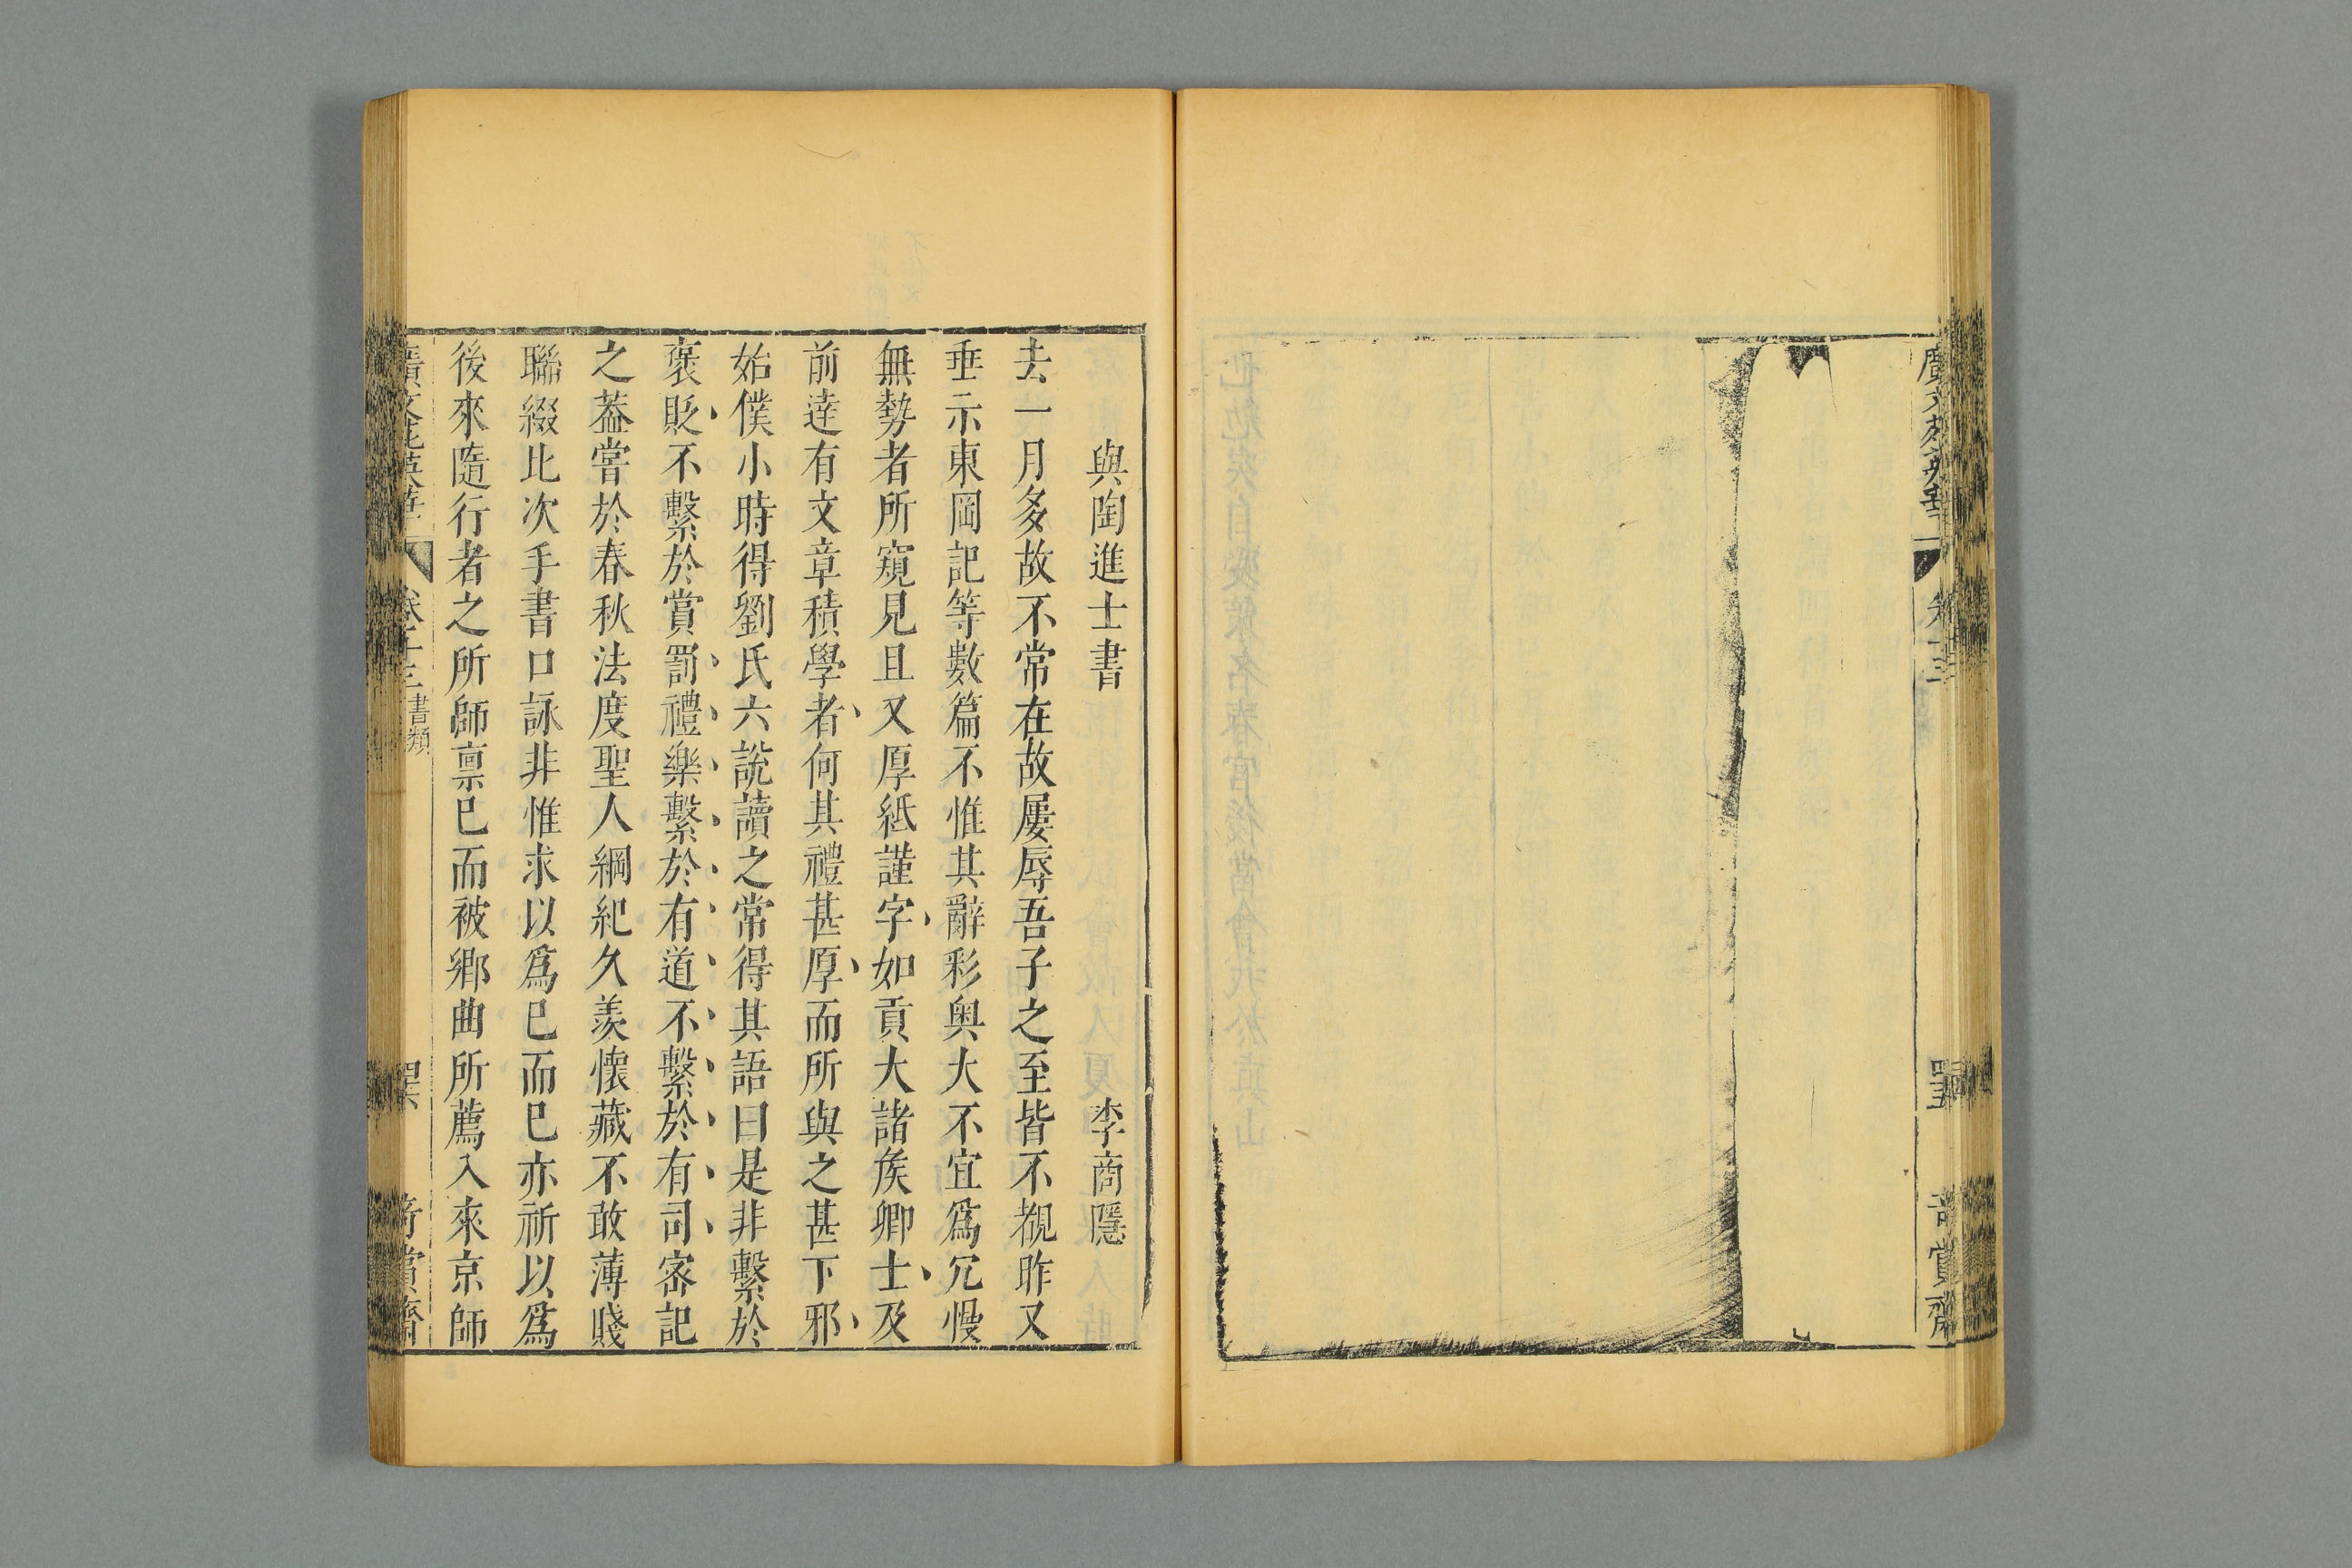 與陶進士書 李商隱
去一月多故不常在故屢辱吾子之至皆不覩昨又
垂示東岡記等數篇不惟其辭彩奧大不宜爲冗慢
無勢者所窺見且又厚紙謹字如貢大諸矦卿士及
前達有文章積學者何其禮甚厚而所與之甚下邪
始僕小時得劉氏六說讀之常得其語曰是非繫於
褒貶不繫於賞罰禮樂繫於有道不繫於有司宻記
之葢嘗於春秋法度聖人綱紀久羨懷藏不敢薄賤
聯綴比次手書口詠非惟求以爲已而已亦祈以爲
後來隨行者之所師禀已而被鄉曲所薦入來京師
廣文苑英華 書類
賞齋